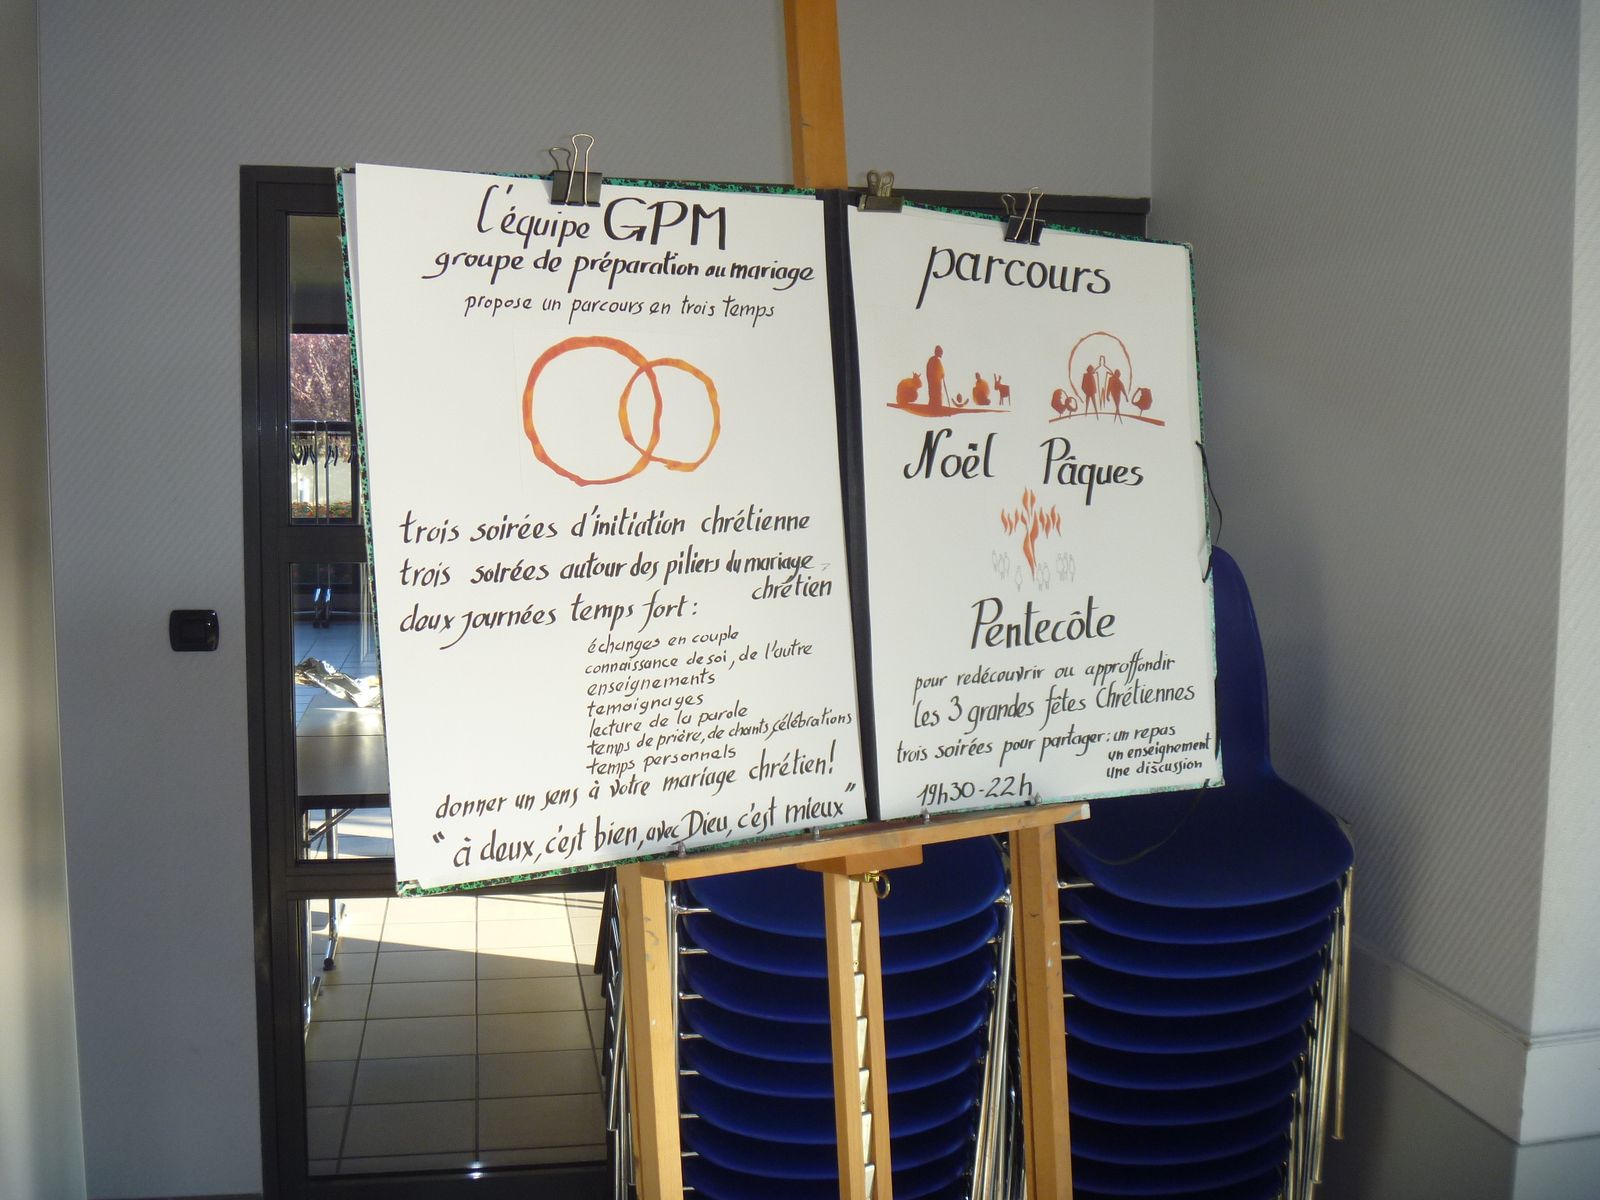 l'équipe GPM
groupe de préparation au mariage
propose un parcours en trois temps
trois soirées d'initiation chrétienne
trois soirées autour des piliers du mariage
chrétien
deux journées temps fort :
échanges en couple
connaissance de soi, de l'autre
enseignements
temoignages
lecture de la parole
temps de prière, de chants, célébrations
temps personnels
donner un sens à votre mariage chrétien!
" à deux, c'est bien, avec Dieu, c'est mieux "
parcours
Noël Pâques
Pentecôte
pour redécouvrir ou approffondir
les 3 grandes fêtes Chrétiennes
trois soirées pour partager : un repas
un enseignement
une discussion
19h30-22h